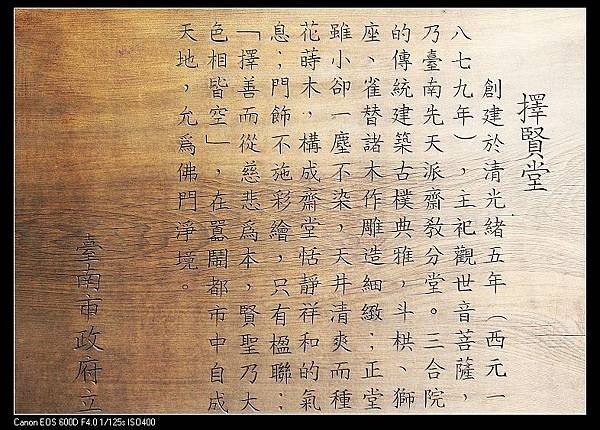 擇賢堂
創建於清光緒五年（西元一
八七九年），主祀觀世音菩薩，
乃臺南先天派齋教分堂。三合院
的傳統建築古樸典雅，斗栱、獅
座、雀替諸木作雕造細緻；正堂
雖小卻一塵不染，天井清爽而種
花蒔木，構成齋堂恬靜祥和的氣
息；門飾不施彩繪，只有楹聯；
「擇善而從慈悲為本，賢聖乃大
色相皆空」，在囂鬧都市中自成
天地，允為佛門淨境。
臺南市政府立
Canon EOS 600D F4.0 1/125s ISO400